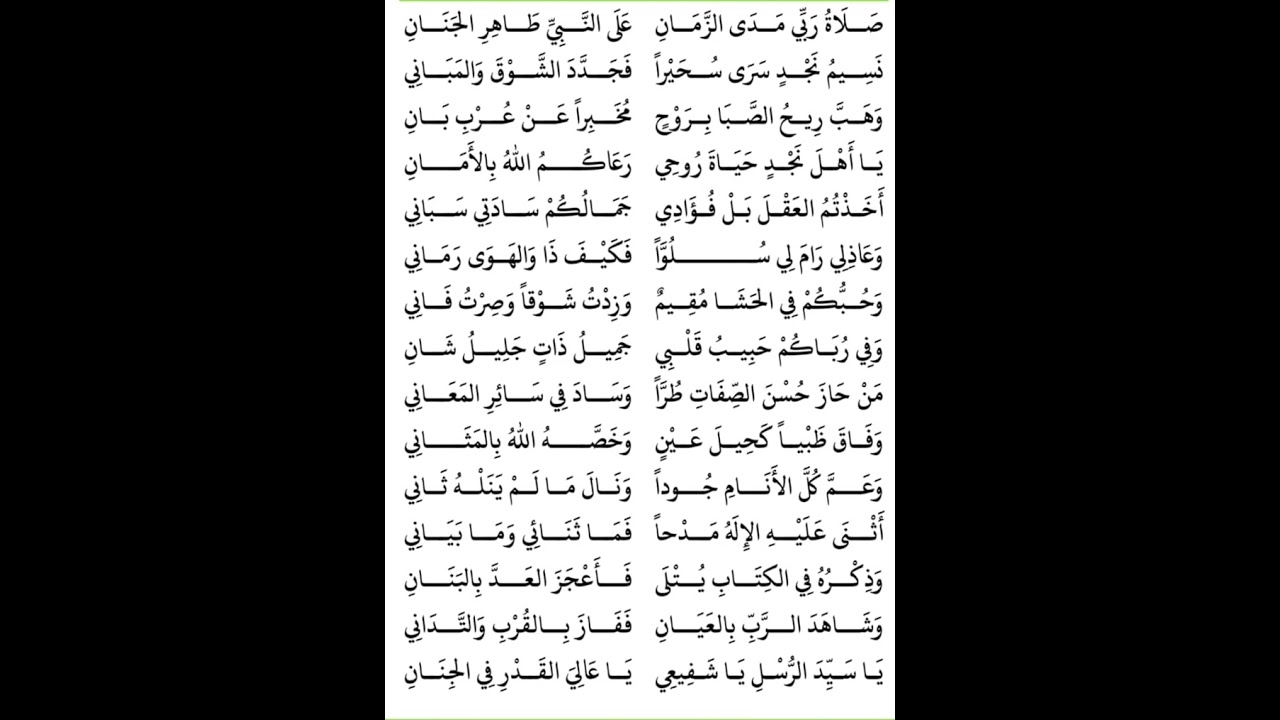 صَلَاةُ رَبِّي مَدَى الزَّمَانِ عَلَى النَّبِيِّ طَاهِرِ الجَنَانِ
نَسِيمُ نَجْدٍ سَرَى سُحَيْراً فَجَدَّدَ الشَّوْقَ وَالمَبَانِي
وَهَبَّ رِيحُ الصَّبَا بِرَوْحٍ مُخَبِراً عَنْ عُرْبِ بَانِ
يَا أَهْلَ نَجْدٍ حَيَاةَ رُوحِي رَعَاكُمُ اللهُ بِالأَمَانِ
أَخَذْتُمُ العَقْلَ بَلْ فُؤَادِي جَمَالُكُمْ سَادَتِي سَبَانِي
وَعَاذِلِي رَامَ لِي سُلُوَّاً فَكَيْفَ ذَا وَالهَوَى رَمَانِي
وَحُبُّكُمْ فِي الحَشَا مُقِيمٌ وَزِدْتُ شَوْقاً وَصِرْتُ فَانِي
وَفِي رُبَاكُمْ حَبِيبُ قَلْبِي جَمِيلُ ذَاتٍ جَلِيلُ شَانِ
مَنْ حَازَ حُسْنَ الصِّفَاتِ طُرَّاً وَسَادَ فِي سَائِرِ المَعَانِي
وَفَاقَ ظَبْياً كَحِيلَ عَيْنٍ وَخَصَّهُ اللهُ بِالمَثَانِي
وَعَمَّ كُلَّ الأَنَامِ جُوداً وَنَالَ مَا لَمْ يَنَلْهُ ثَانِي
أَثْنَى عَلَيْهِ الإِلَهُ مَدْحاً فَمَا ثَنَائِي وَمَا بَيَانِي
وَذِكْرُهُ فِي الكِتَابِ يُتْلَى فَأَعْجَزَ العَدَّ بِالبَنَانِ
وَشَاهَدَ الرَّبِّ بِالعَيَانِ فَفَازَ بِالقُرْبِ وَالتَّدَانِي
يَا سَيِّدَ الرُّسْلِ يَا شَفِيعِي يَا عَالِيَ القَدْرِ فِي الجِنَانِ